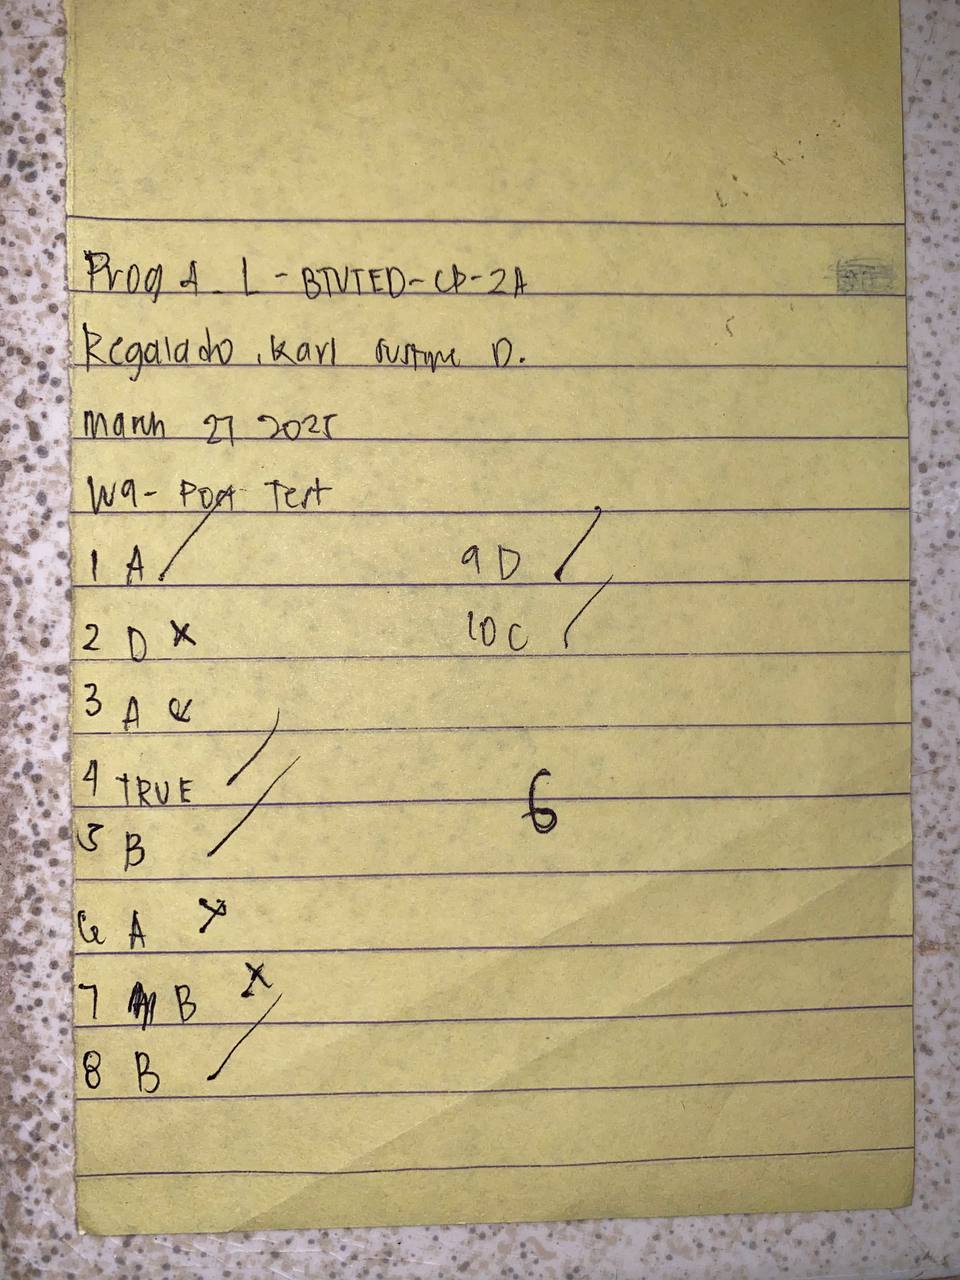 Prog 4 L - BTVTED-CP-2A
Regalado, Karl D.
March 27 2025
W9 - Post Test
1 A
2 D x
3 A x
4 TRUE
5 B
6 A x
7 B x
8 B
9 D
10 C
6